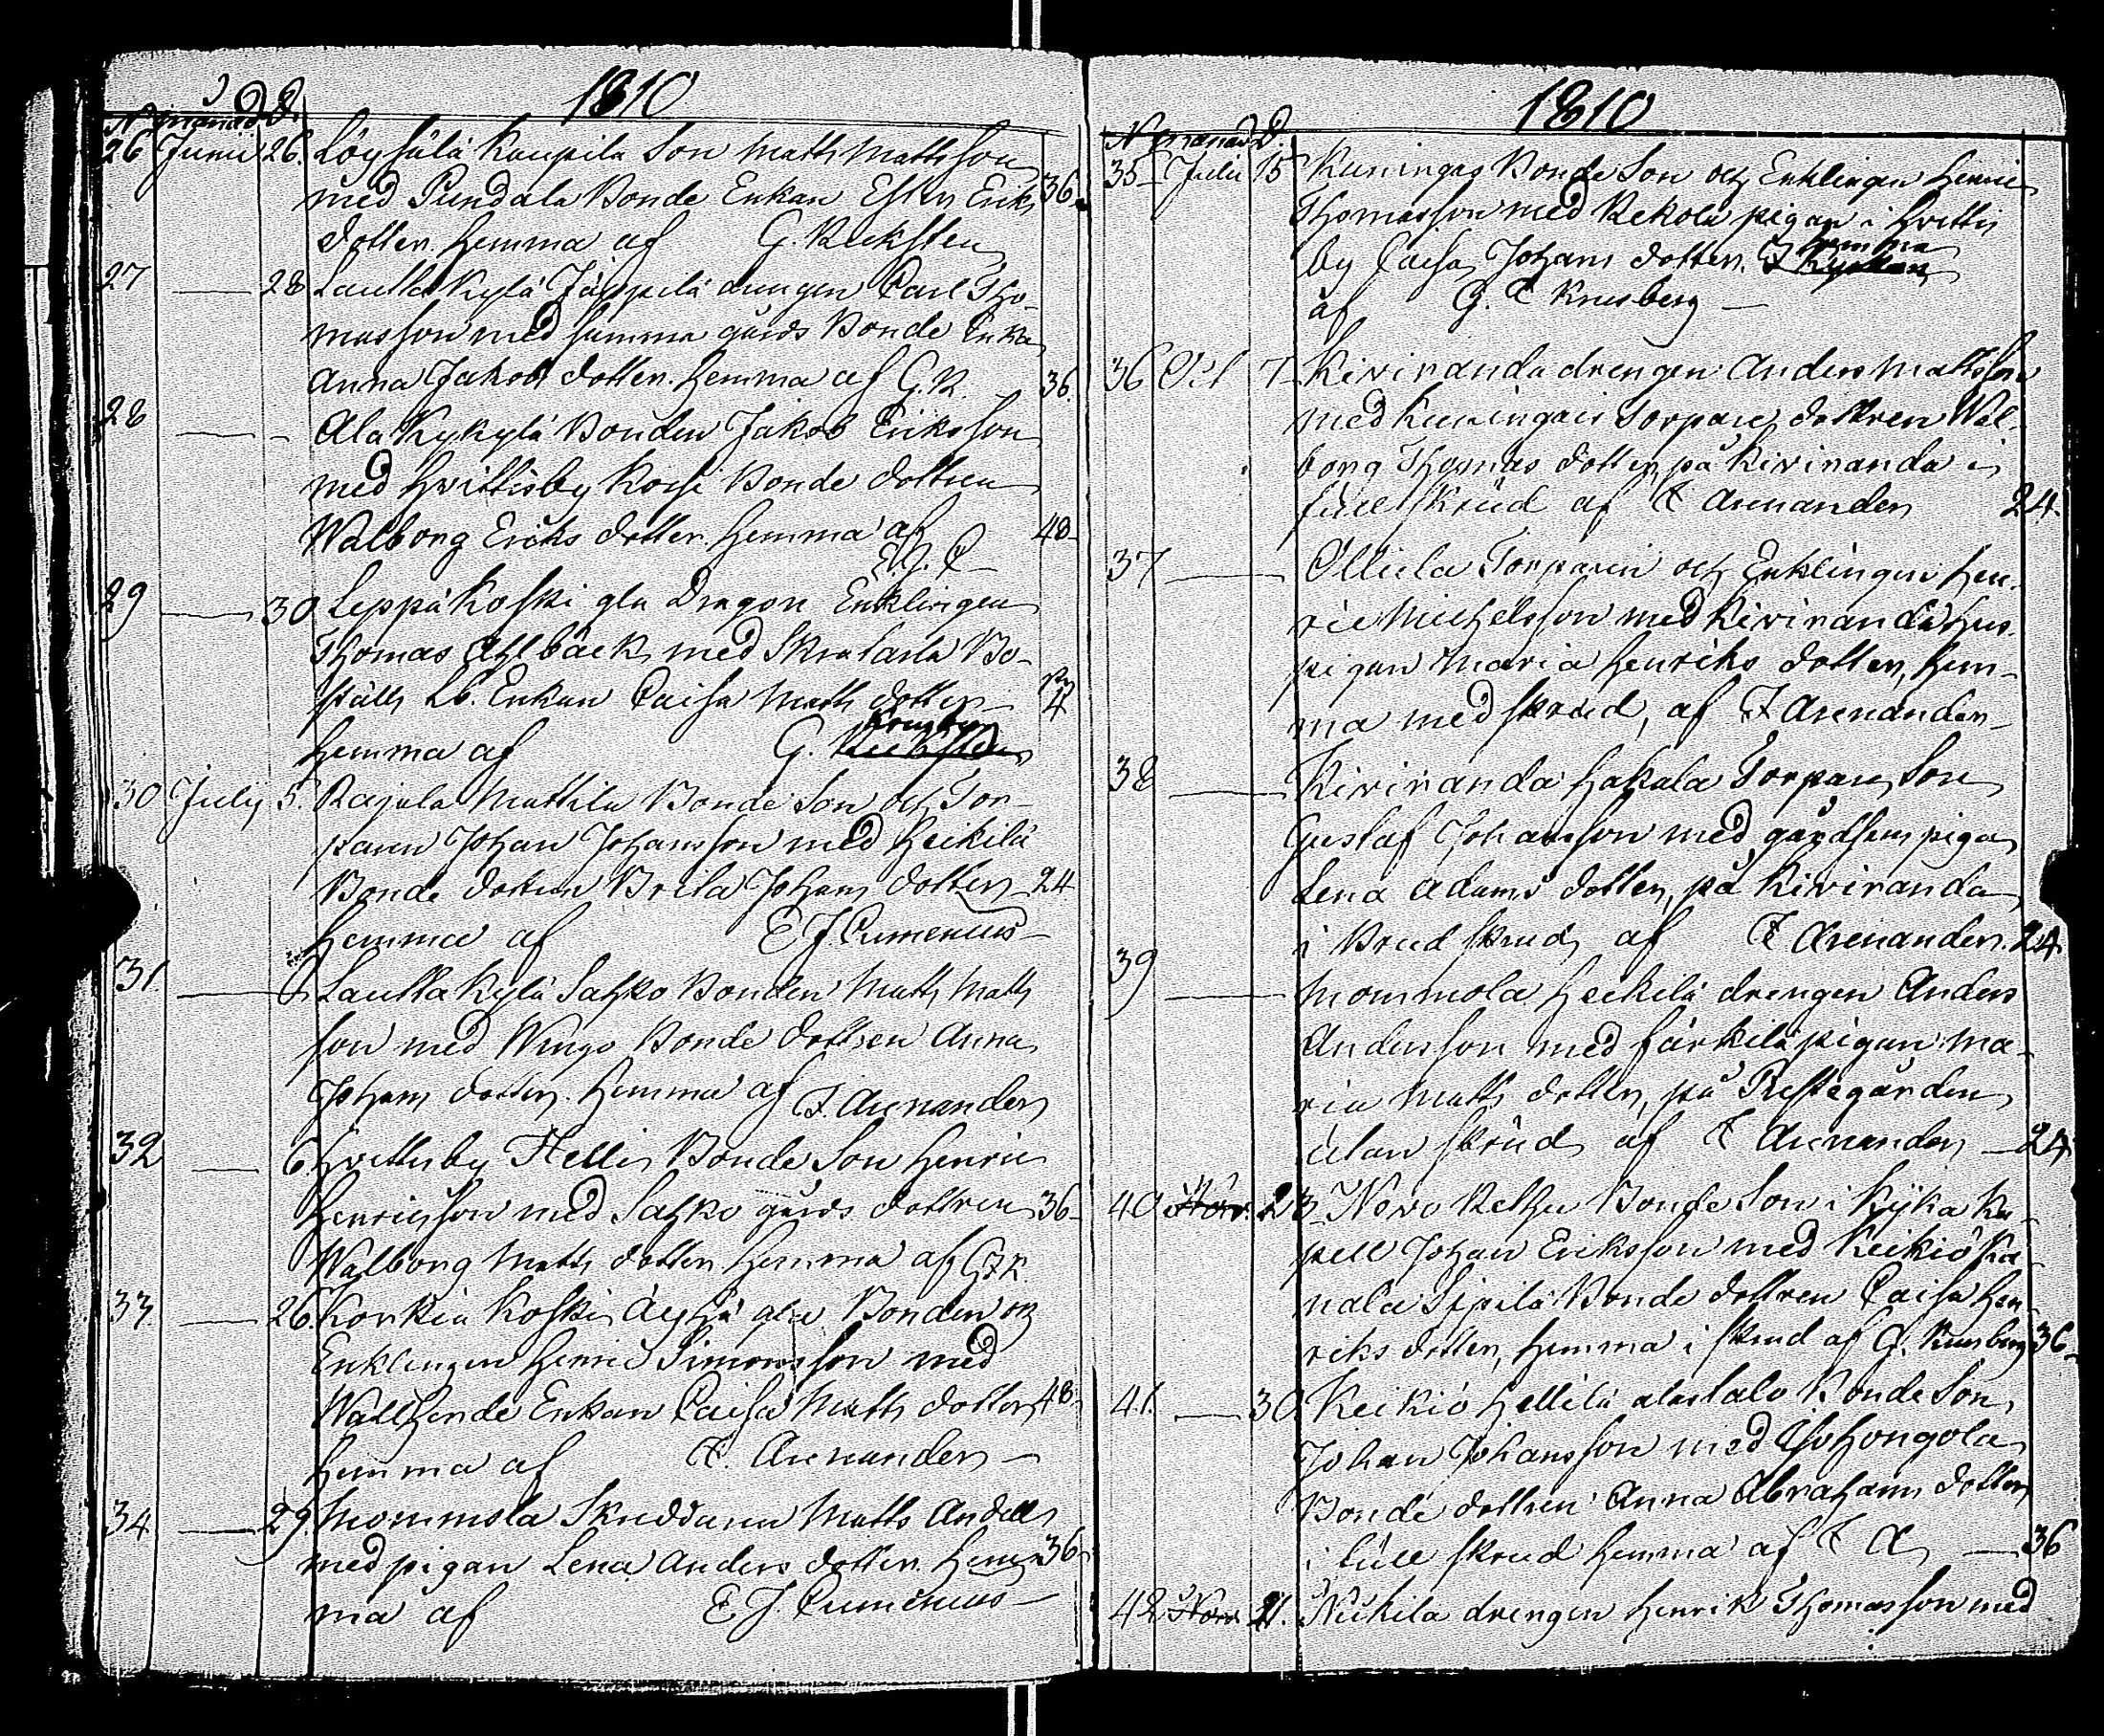 1810
N månad D.
26 Junii 26. Löysälä Kaupila Son Matts Mattsson
med Pundala Bonde Enkan Ester Eriks 36
dotter hemma af G. Reksten
27 — 28 Lautta Kylä Jäppilä drengen Carl Tho-
masson med samma gårds Bonde Enka
Anna Jakobs dotter. hemma af G. R. 36.
28 — - Ala Kykylä Bonden Jakob Eriksson
med Hvittisby Bonde dottren
Walborg Eriks dotter. hemma af 48
E. J. C
29 — 30 Leppäkoski gla Dragon Enklingen
Thomas Ahlbäck med Bo-
ställs Enkan Caisa Matts dotter 4
hemma af G. Krusberg
30 Julij 5. Rajala Mattila Bonde Son och Tor-
paren Johan Johansson med Heikilä
Bonde dottren Brita Johans dotter 24
hemma af E J. Cumenius
31. — Lautta Kylä Sahko Bonden Matts Matts
son med Bonde dottren Anna
Johans dotter. hemma af F. Arenander
32 — 6 Hvittisby Helli Bonde Son Henric
Henricsson med Sahko gårds dottren 36
Walborg Matts dotter hemma af G. K.
33 — 26. Korkia Koski Äyhä gla Bonden och
Enklingen Henric Simonsson med
Enkan Caisa Matts dotter 48
hemma af F. Arenander
34 — 29. Mommola Skräddaren Matts
med pigan Lena Anders dotter. hem 36
ma af E J. Cumenius
1810
N månad D.
35 Julii 15 Kuningas Bonde Son och Enklingen Henric
Thomasson med Rekola pigan i Hvittis
hemma
by Caisa Johans dotter.
af G. Krusberg
36 Oct 7 Kiviranda drengen Anders Mattsson
med Kuningais Torpare dottren Wal-
borg Thomas dotter, på Kiviranda i
full skrud af F Arenander 24.
37 — Ollila Torparen och Enklingen Hen-
ric Michelsson med Kiviranda hus
pigan Maria Henriks dotter, hem-
ma med skrud, af F Arenander
38 — Kiviranda Hakala Torpare Son
Gustaf Johansson med gårdsens piga
Lena Adams dotter, på Kiviranda
i Brud skrud af F Arenander. 24
39 — Mommola Heikilä drengen Anders
Andersson med Färkilä pigan Ma-
ria Matts dotter, på Prestegården
utan skrud af F Arenander — 24
40 23 Bonde Son i Kyka Ka-
pell Johan Eriksson med Keikiö Ka-
nala Sipilä Bonde dottren Caisa Hen-
riks dotter, hemma i skrud af G. Krusberg 36
41. — 30. Keikiö Hellilä alastalo Bonde Son
Johan Johansson med
Bonde dottren Anna Abrahams dotter
i full skrud hemma af F A — 36
42 Nov. 21. Neikila drengen Henrik Thomasson med